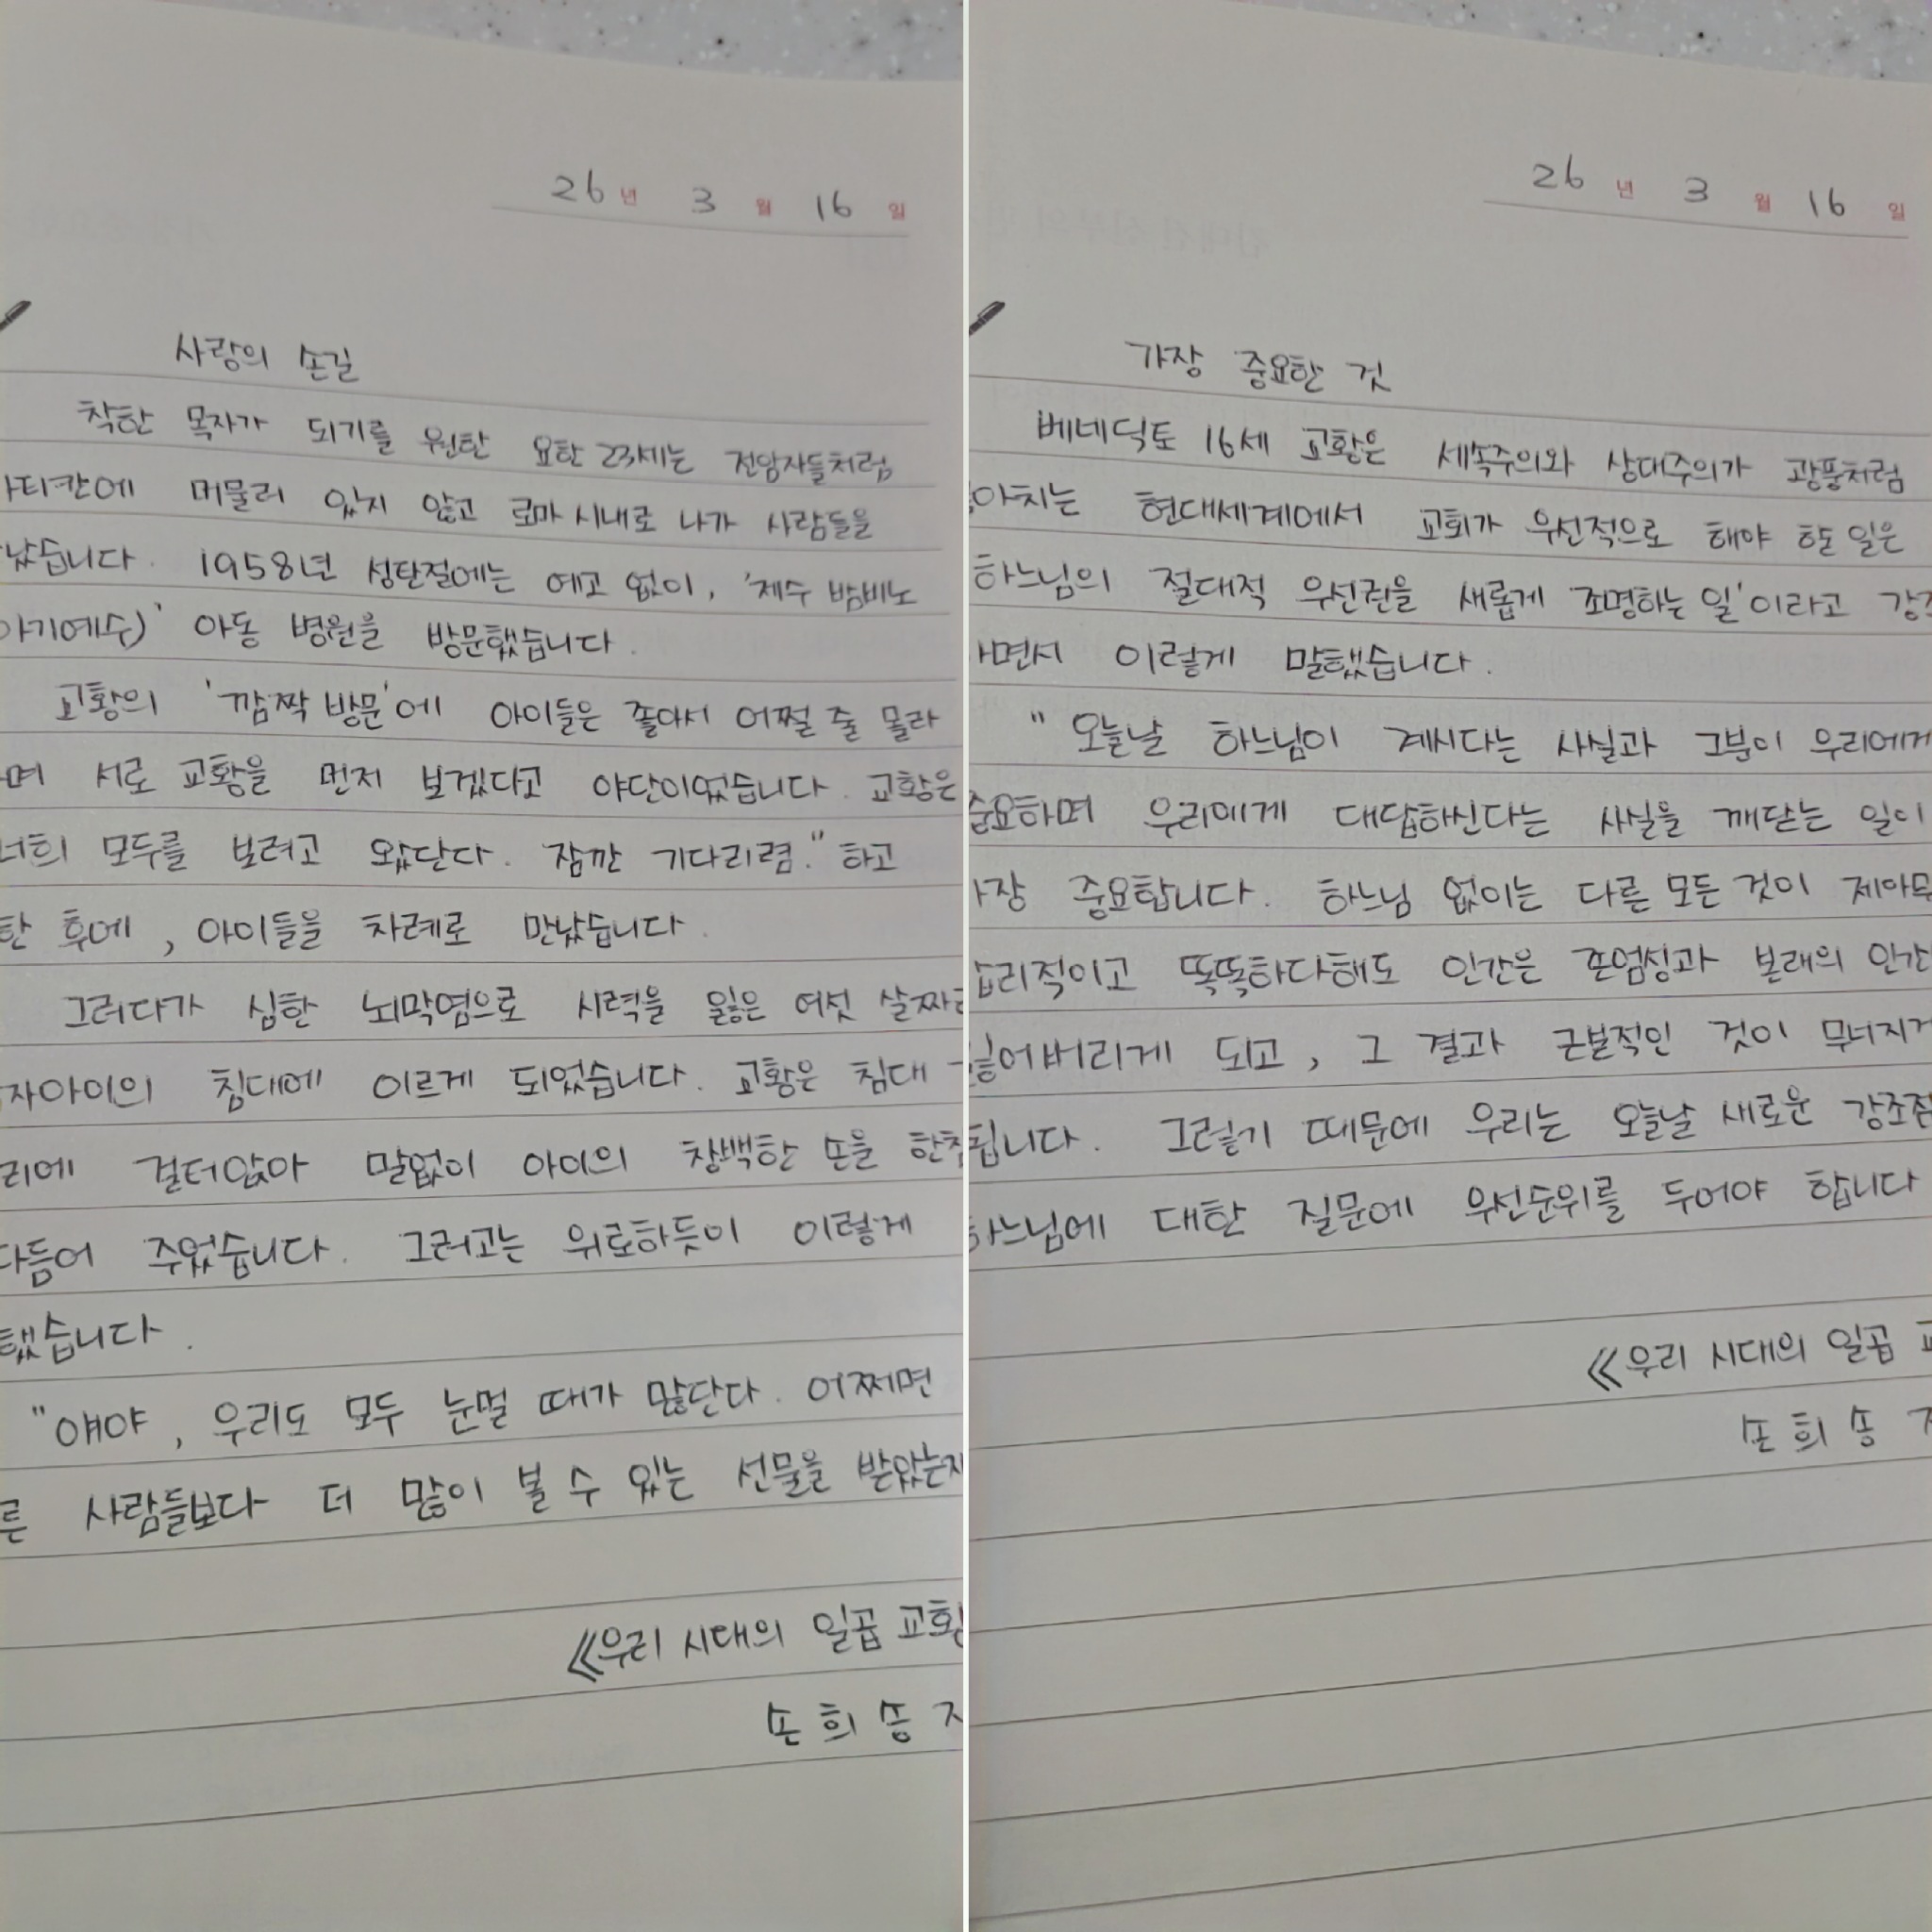 26년 3월 16일
사랑의 손길
착한 목자가 되기를 원한 요한 23세는 전임자들처럼
티칸에 머물러 있지 않고 로마 시내로 나가 사람들을
났습니다. 1958년 성탄절에는 예고 없이, '제수 밤비노
아기예수)' 아동 병원을 방문했습니다.
교황의 '깜짝 방문'에 아이들은 좋아서 어쩔 줄 몰라
며 서로 교황을 먼저 보겠다고 야단이었습니다. 교황은
너희 모두를 보려고 왔단다. 잠깐 기다리렴." 하고
한 후에, 아이들을 차례로 만났습니다.
그러다가 심한 뇌막염으로 시력을 잃은 여섯 살짜리
자아이의 침대에 이르게 되었습니다. 교황은 침대
리에 걸터앉아 말없이 아이의 창백한 손을 한참
다듬어 주었습니다. 그러고는 위로하듯이 이렇게
했습니다.
"얘야, 우리도 모두 눈멀 때가 많단다. 어쩌면
른 사람들보다 더 많이 볼 수 있는 선물을 받았는지
《우리 시대의 일곱 교황
손희송
26년 3월 16일
가장 중요한 것
베네딕토 16세 교황은 세속주의와 상대주의가 광풍처럼
아치는 현대세계에서 교회가 우선적으로 해야 할 일은
하느님의 절대적 우선권을 새롭게 조명하는 일'이라고 강조
면서 이렇게 말했습니다.
"오늘날 하느님이 계시다는 사실과 그분이 우리에게
중요하며 우리에게 대답하신다는 사실을 깨닫는 일이
장 중요합니다. 하느님 없이는 다른 모든 것이 제아무
합리적이고 똑똑하다해도 인간은 존엄성과 본래의 인간
잃어버리게 되고, 그 결과 근본적인 것이 무너지게
됩니다. 그렇기 때문에 우리는 오늘날 새로운 강조점
하느님에 대한 질문에 우선순위를 두어야 합니다
《우리 시대의 일곱
손희송